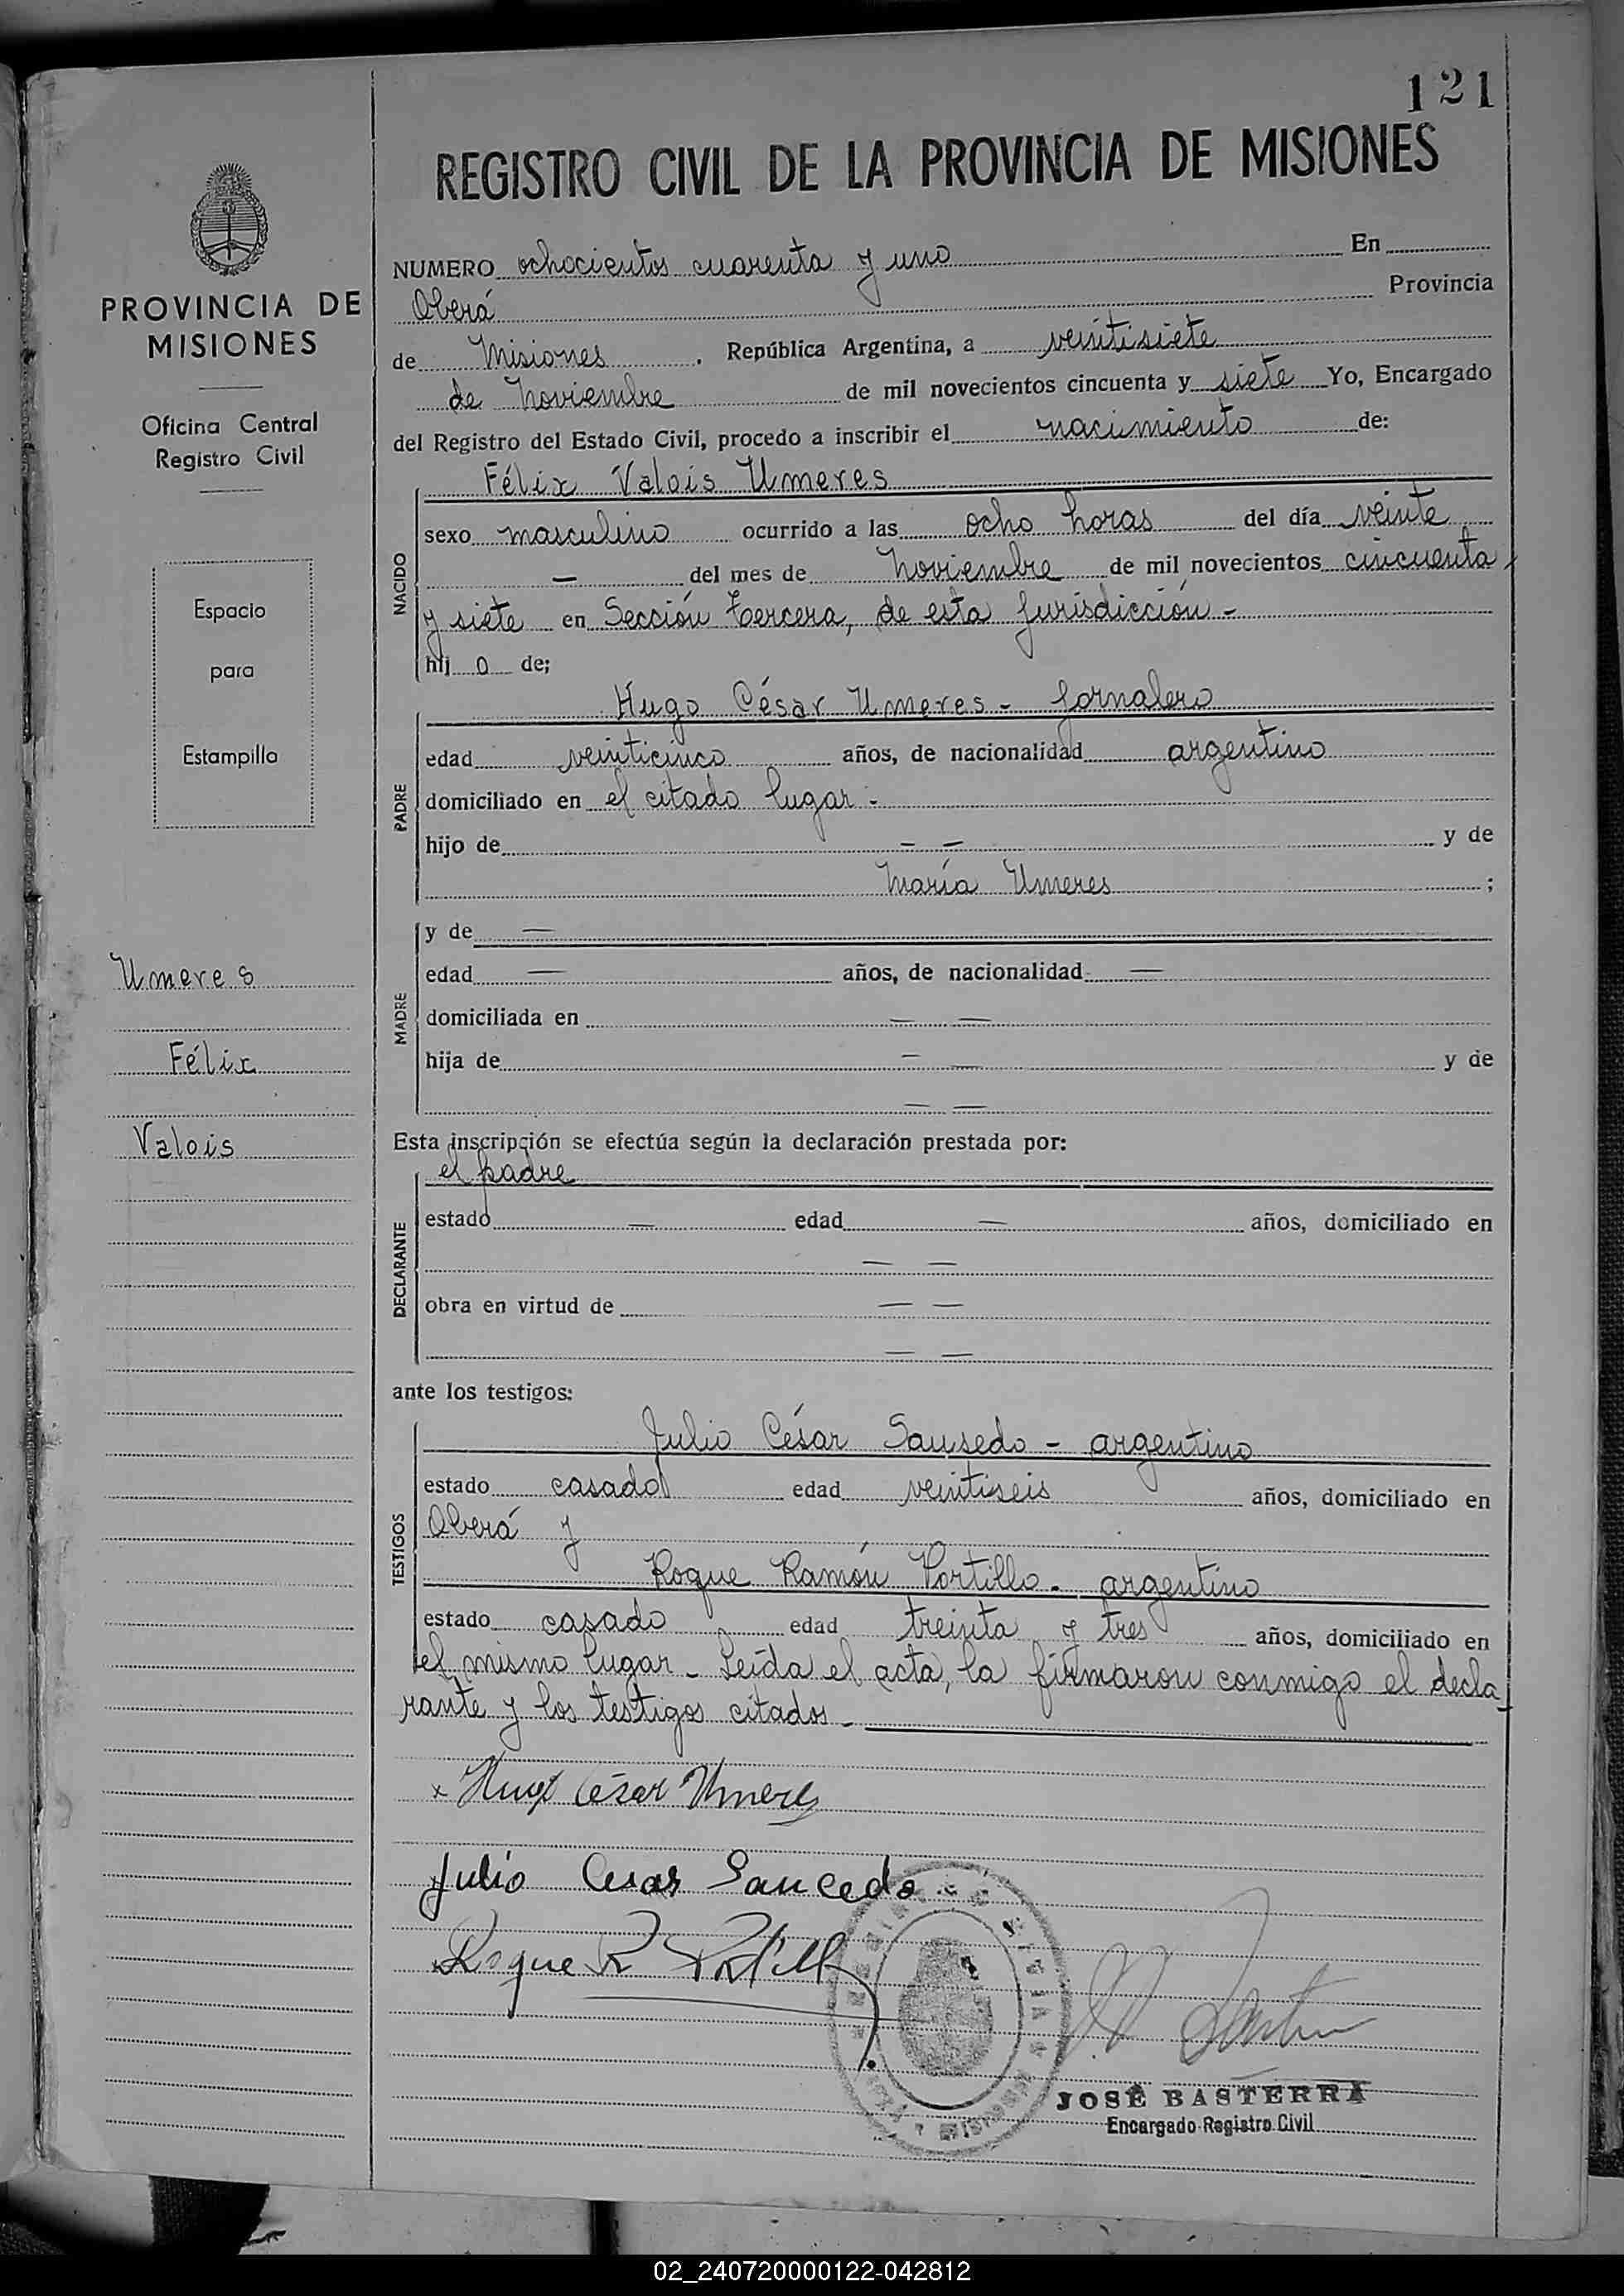 121
REGISTRO CIVIL DE LA PROVINCIA DE MISIONES
PROVINCIA DE
MISIONES
Oficina Central
Registro Civil
Espacio
para
Estampilla
Umeres
Félix
Valois
NUMERO ochocientos cuarenta y uno En
Oberá Provincia
de Misiones . República Argentina, a veintisiete
de Noviembre de mil novecientos cincuenta y siete Yo, Encargado
del Registro del Estado Civil, procedo a inscribir el nacimiento de:
NACIDO
Félix Valois Umeres
sexo masculino ocurrido a las ocho horas del día veinte
— del mes de Noviembre de mil novecientos cincuenta
y siete en Sección tercera, de esta Jurisdicción -
hij o de;
PADRE
Hugo César Umeres - Jornalero
edad veinticinco años, de nacionalidad argentino
domiciliado en el citado lugar -
hijo de — — y de
María Umeres ;
MADRE
y de —
edad — años, de nacionalidad —
domiciliada en — —
hija de — — y de
— —
Esta inscripción se efectúa según la declaración prestada por:
DECLARANTE
el padre
estado — edad — años, domiciliado en
— —
obra en virtud de — —
— —
ante los testigos:
TESTIGOS
Julio César Sausedo - argentino
estado casado edad veintiseis años, domiciliado en
Oberá y
Roque Ramón Portillo - argentino
estado casado edad treinta y tres años, domiciliado en
el mismo lugar - Leída el acta, la firmaron conmigo el decla-
rante y los testigos citados -
x Hugo César Umeres
Julio Cesar Saucedo
Roque R Portillo
JOSÉ BASTERRA
Encargado Registro Civil
02_240720000122-042812